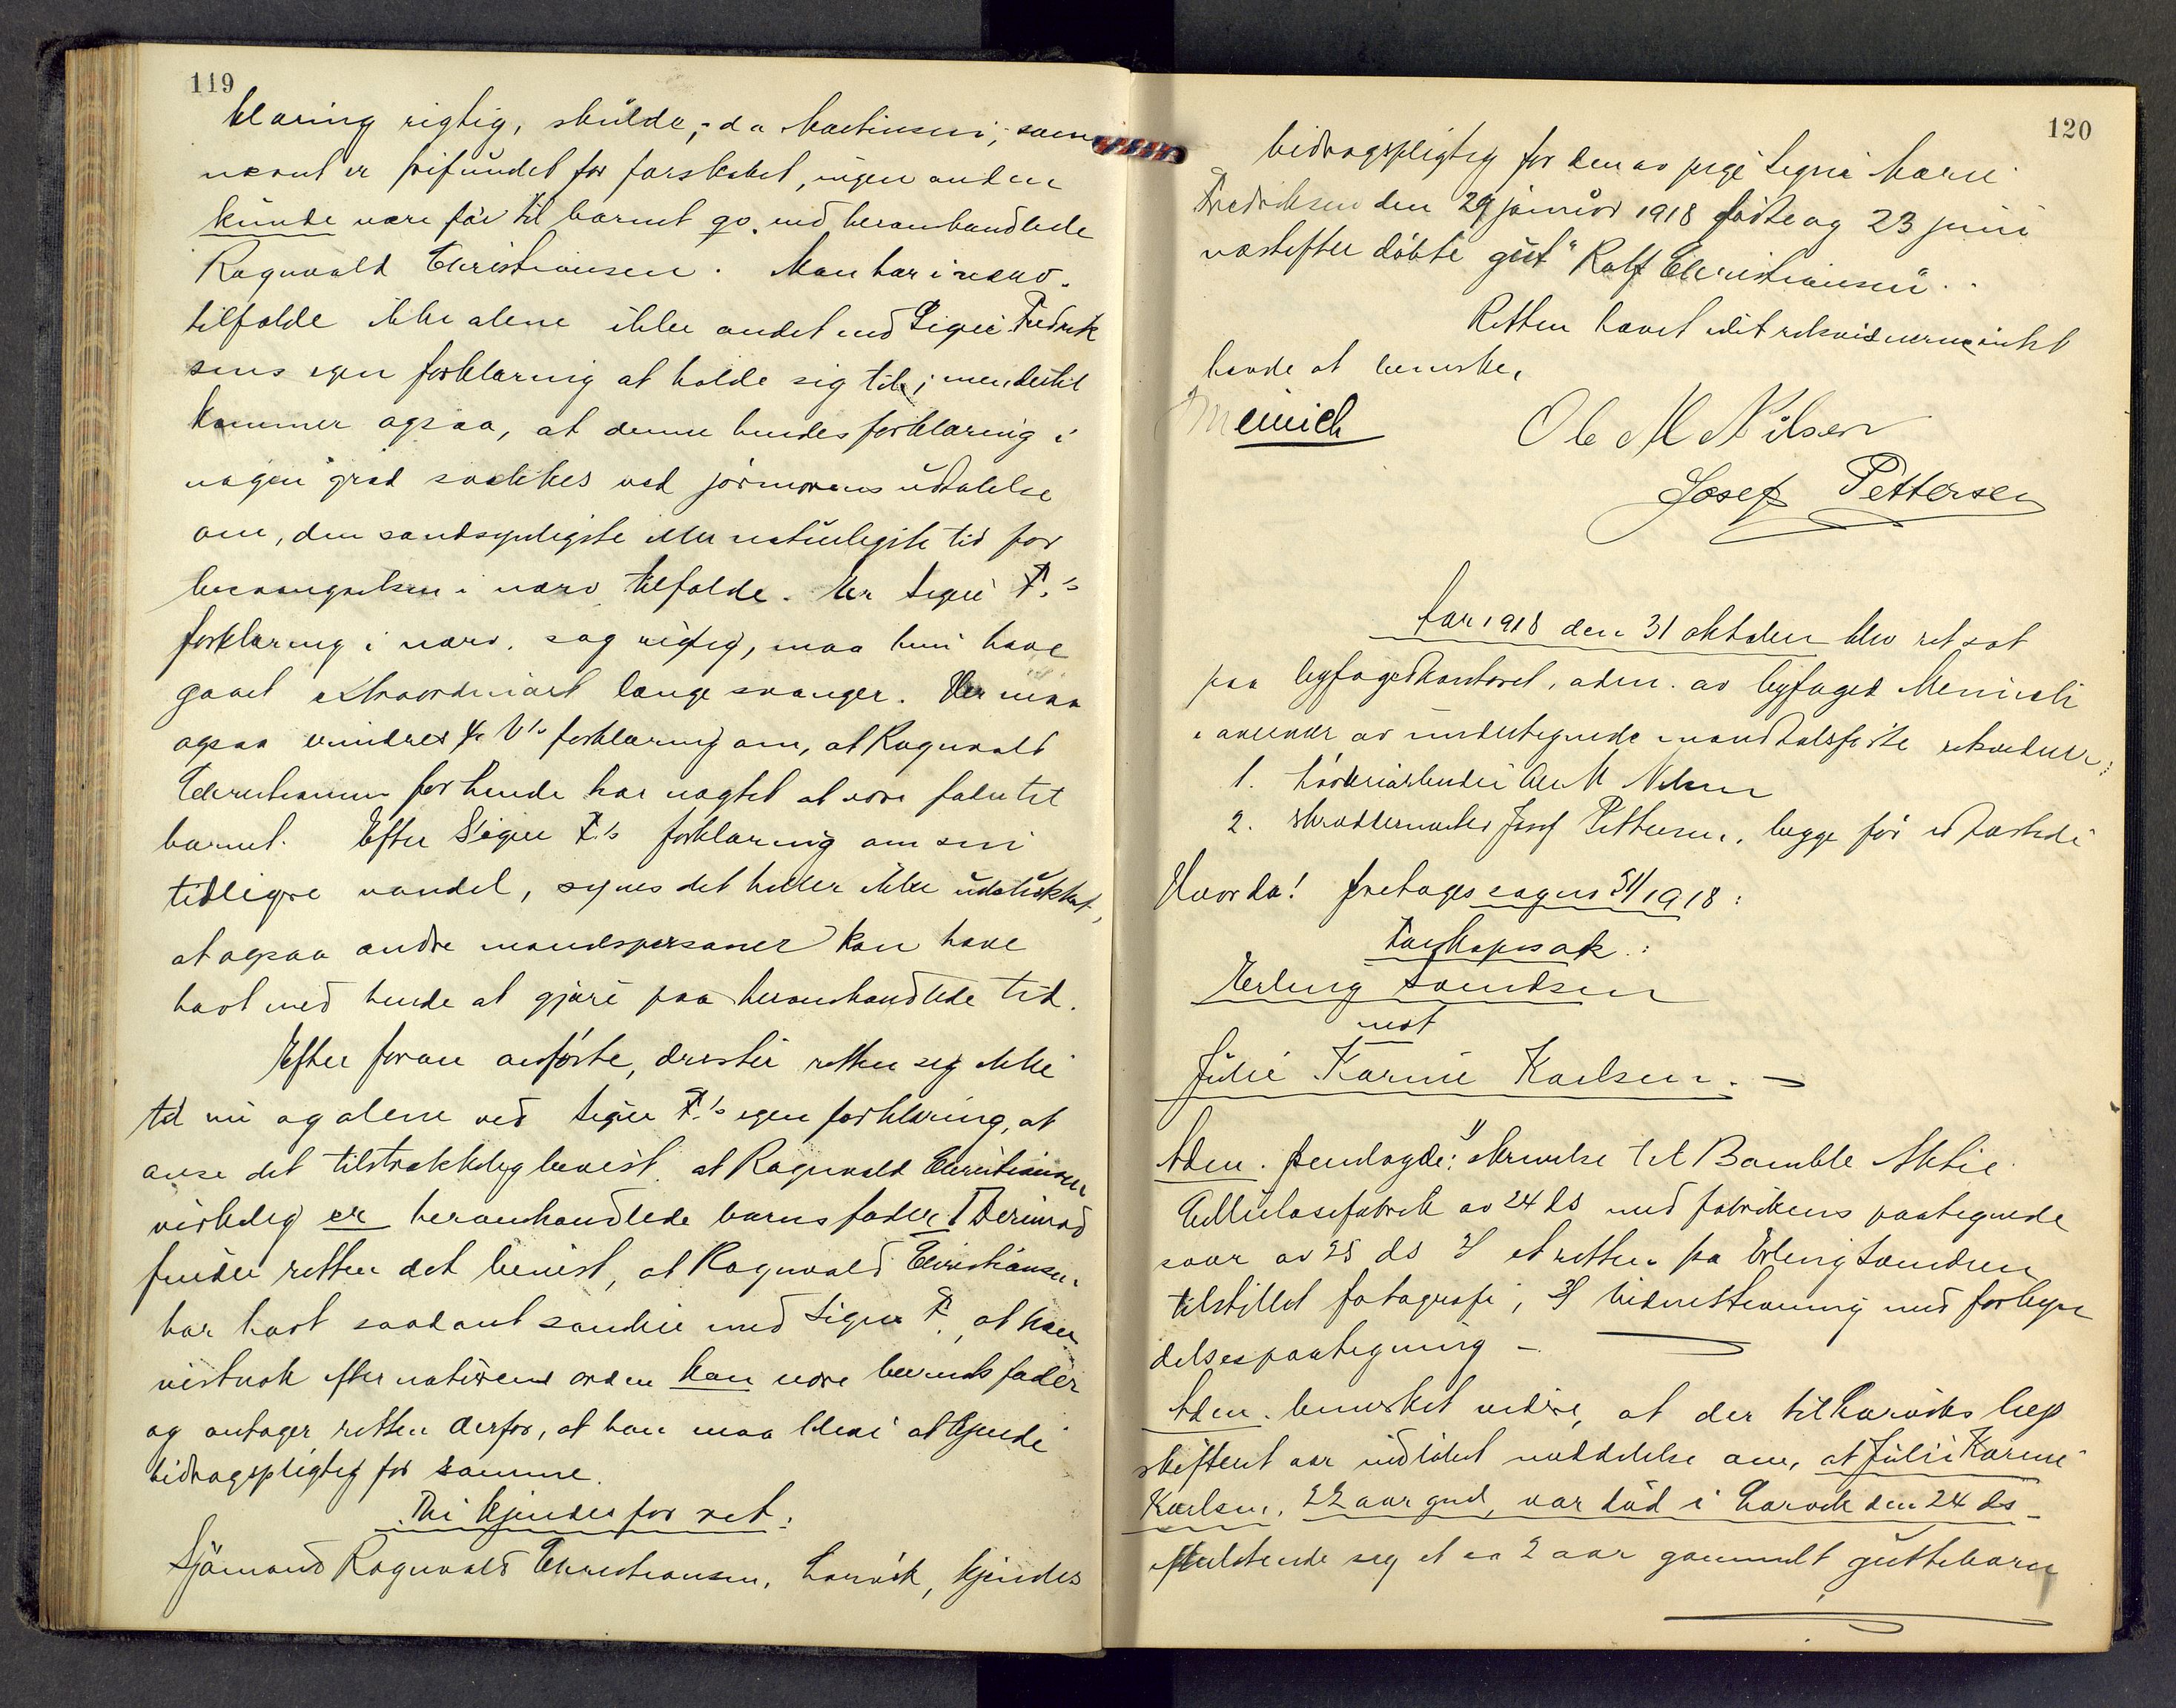 119
klaring rigtig, skulde, - da Martinsen, som
nævnt er frifundet for farskabet, ingen anden
kunde være far til barnet go. end heromhandlede
Ragnvald Christiansen. Man har i nærv.
tilfælde ikke alene ikke andet end Signe Fredrik
sens egen forklaring at holde sig til; men dertil
kommer ogsaa, at denne hendes forklaring i
nogen grad svækkes ved jormorens udtalelse
om, den sandsynligste eller naturligste tid for
besvangrelsen i nærv. tilfælde. Er Signe F.'s
forklaring i nærv. sag rigtig, maa hun have
gaaet extraordinært længe svanger. Der maa
ogsaa erindres V's forklaring om, at Ragnvald
Christiansen for hende har nægtet at være fader til
barnet. Efter Signe F.'s forklaring om sin
tidligere vandel, synes det heller ikke udelukket,
at ogsaa andre mandspersoner kan have
havt med hende at gjøre paa heromhandlede tid.
Efter foran anførte, drister retten sig ikke
til nu og alene ved Signe F.'s egen forklaring, at
anse det tilstrækkelig bevist, at Ragnvald Christiansen
virkelig er heromhandlede barns fader. Derimod
finder retten det bevist, at Ragnvald Christiansen
har havt saadant samleie med Signe F., at han
vistnok efter naturens orden kan være barnets fader
og antager retten derfor, at han maa blive at kjende
bidragspligtig for samme.
Thi kjendes for ret:
Sjømand Ragnvald Christiansen, Larvik, kjendes
120
bidragspligtig for den av pige Signe Marie
Fredriksen den 29 januar 1918 fødte og 23 juni
næstefter døbte gut "Ralf Christiansen".
Retten hævet idet retsvidnerne intet
havde at bemerke.
Meinich Ole M Nilsen
Josef Pettersen
Aar 1918 den 31 oktober blev ret sat
paa byfogedkontoret, adm. av byfoged Meinich
i overvær av undertegnede mandtalsførte retsvidner:
1. Ole M Nilsen
2. skræddermester Josef Pettersen, begge før edfæstede
Hvorda! foretages sagen 31/1918:
Farskapssak:
Erling Svendsen
mot
Julie Karine Karlsen. -
Adm. fremlagde: 1) skrivelse til Bamble Aktie
Cellulosefabrik av 24 ds med fabrikens paategnede
svar av 25 ds 2) et retten fra Erling Svendsen
tilstillet fotografi, 3) vidnestevning med forkyn
delsespaategning -
Adm. bemerket videre, at der til Larviks lig
skifteret var indløbet meddelelse om, at Julie Karine
Karlsen, 22 aar gml, var død i Larvik den 24 ds
efterlatende sig et ca 2 aar gammelt guttebarn